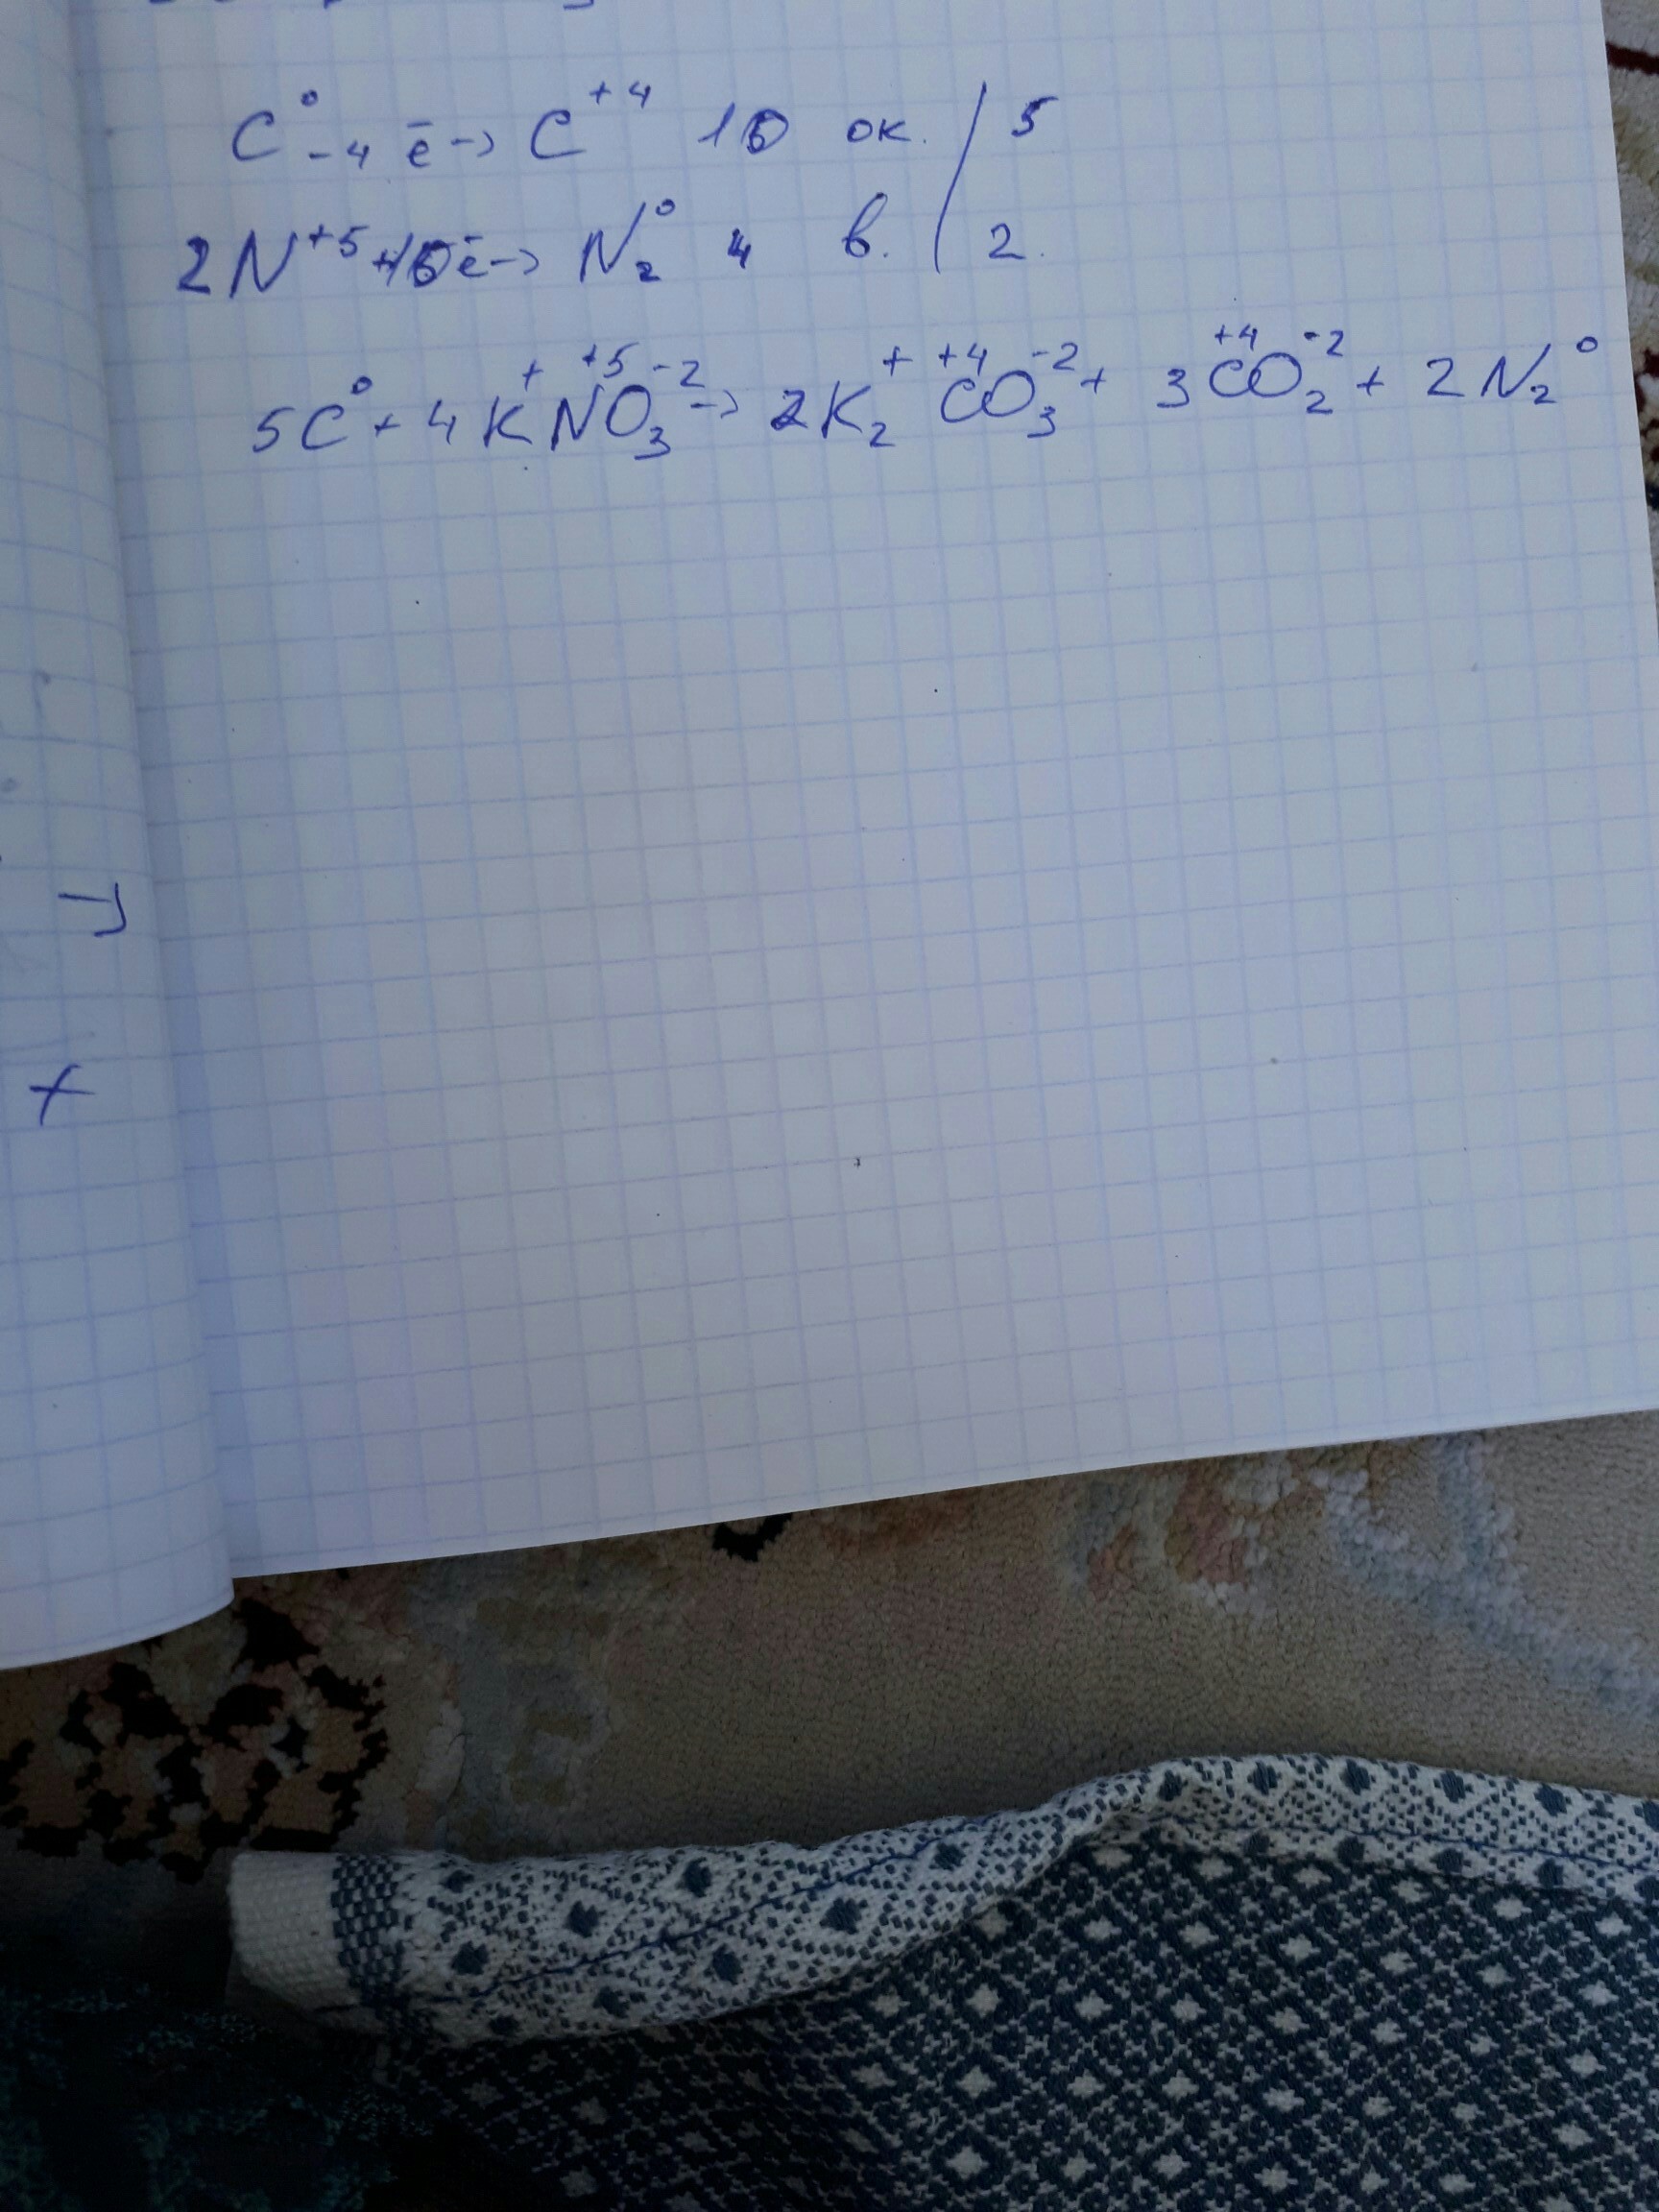 C⁰ -4 ē -> C⁺⁴ 10 ок. / 5
2N⁺⁵ +10ē -> N₂⁰ 4 в. / 2.
5C⁰ + 4K⁺N⁺⁵O₃⁻² -> 2K₂⁺C⁺⁴O₃⁻² + 3C⁺⁴O₂⁻² + 2N₂⁰